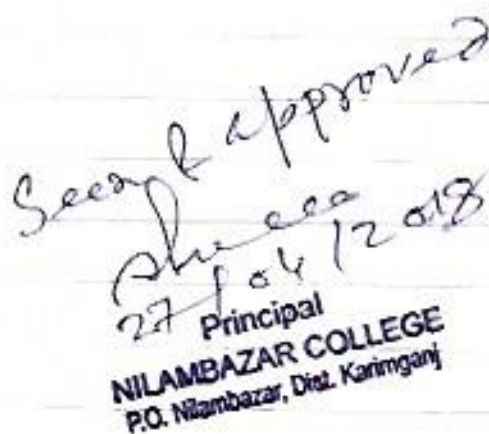 Seen & approved
27/04/2018
Principal
NILAMBAZAR COLLEGE
P.O. Nilambazar, Dist. Karimganj